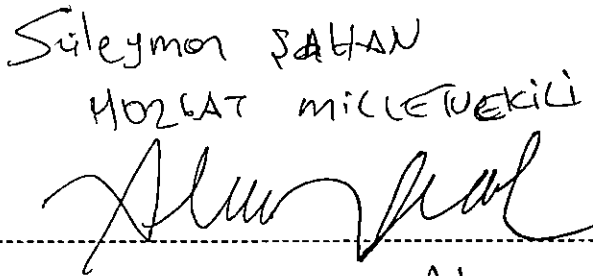 Süleyman ŞAHAN
YOZGAT MİLLETVEKİLİ